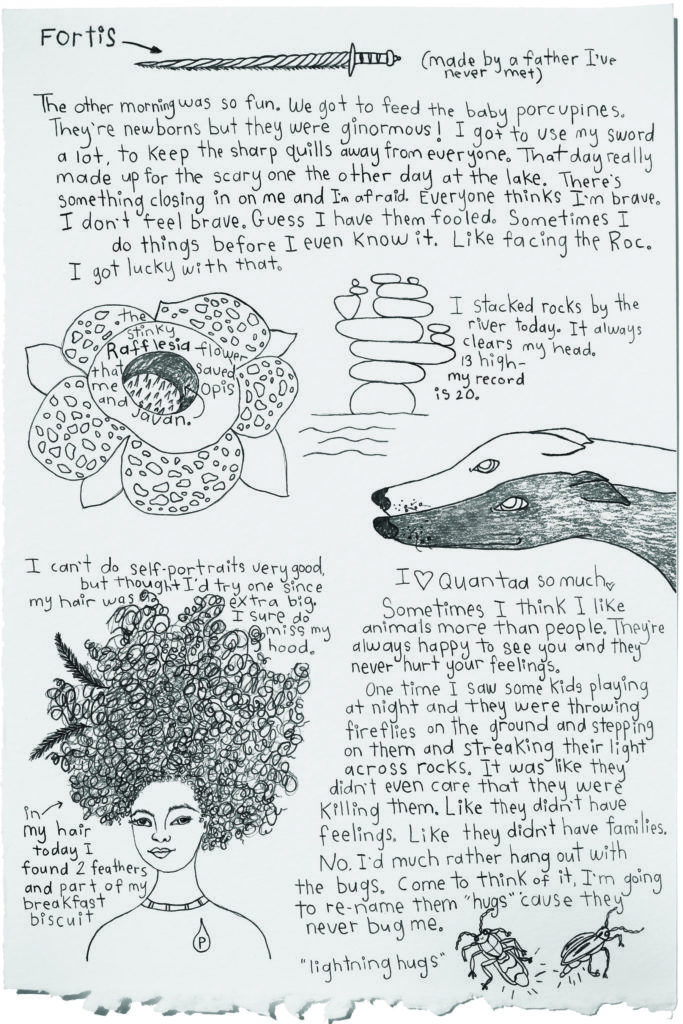 Fortis
(made by a father I've
never met)
The other morning was so fun. We got to feed the baby porcupines.
They're newborns but they were ginormous! I got to use my sword
a lot, to keep the sharp quills away from everyone. That day really
made up for the scary one the other day at the lake. There's
something closing in on me and I'm afraid. Everyone thinks I'm brave.
I don't feel brave. Guess I have them fooled. Sometimes I
do things before I even know it. Like facing the Roc.
I got lucky with that.
the
stinky
Rafflesia flower
that saved
me Opis
and Javan.
I stacked rocks by the
river today. It always
clears my head.
13 high-
my record
is 20.
I can't do self-portraits very good,
but thought I'd try one since
my hair was extra big.
I sure do
miss my
hood.
in
my hair
today I
found 2 feathers
and part of my
breakfast
biscuit
P
I ♡ Quantaa so much ♡
Sometimes I think I like
animals more than people. They're
always happy to see you and they
never hurt your feelings.
One time I saw some kids playing
at night and they were throwing
fireflies on the ground and stepping
on them and streaking their light
across rocks. It was like they
didn't even care that they were
killing them. Like they didn't have
feelings. Like they didn't have families.
No. I'd much rather hang out with
the bugs. Come to think of it, I'm going
to re-name them "hugs" 'cause they
never bug me.
"lightning hugs"